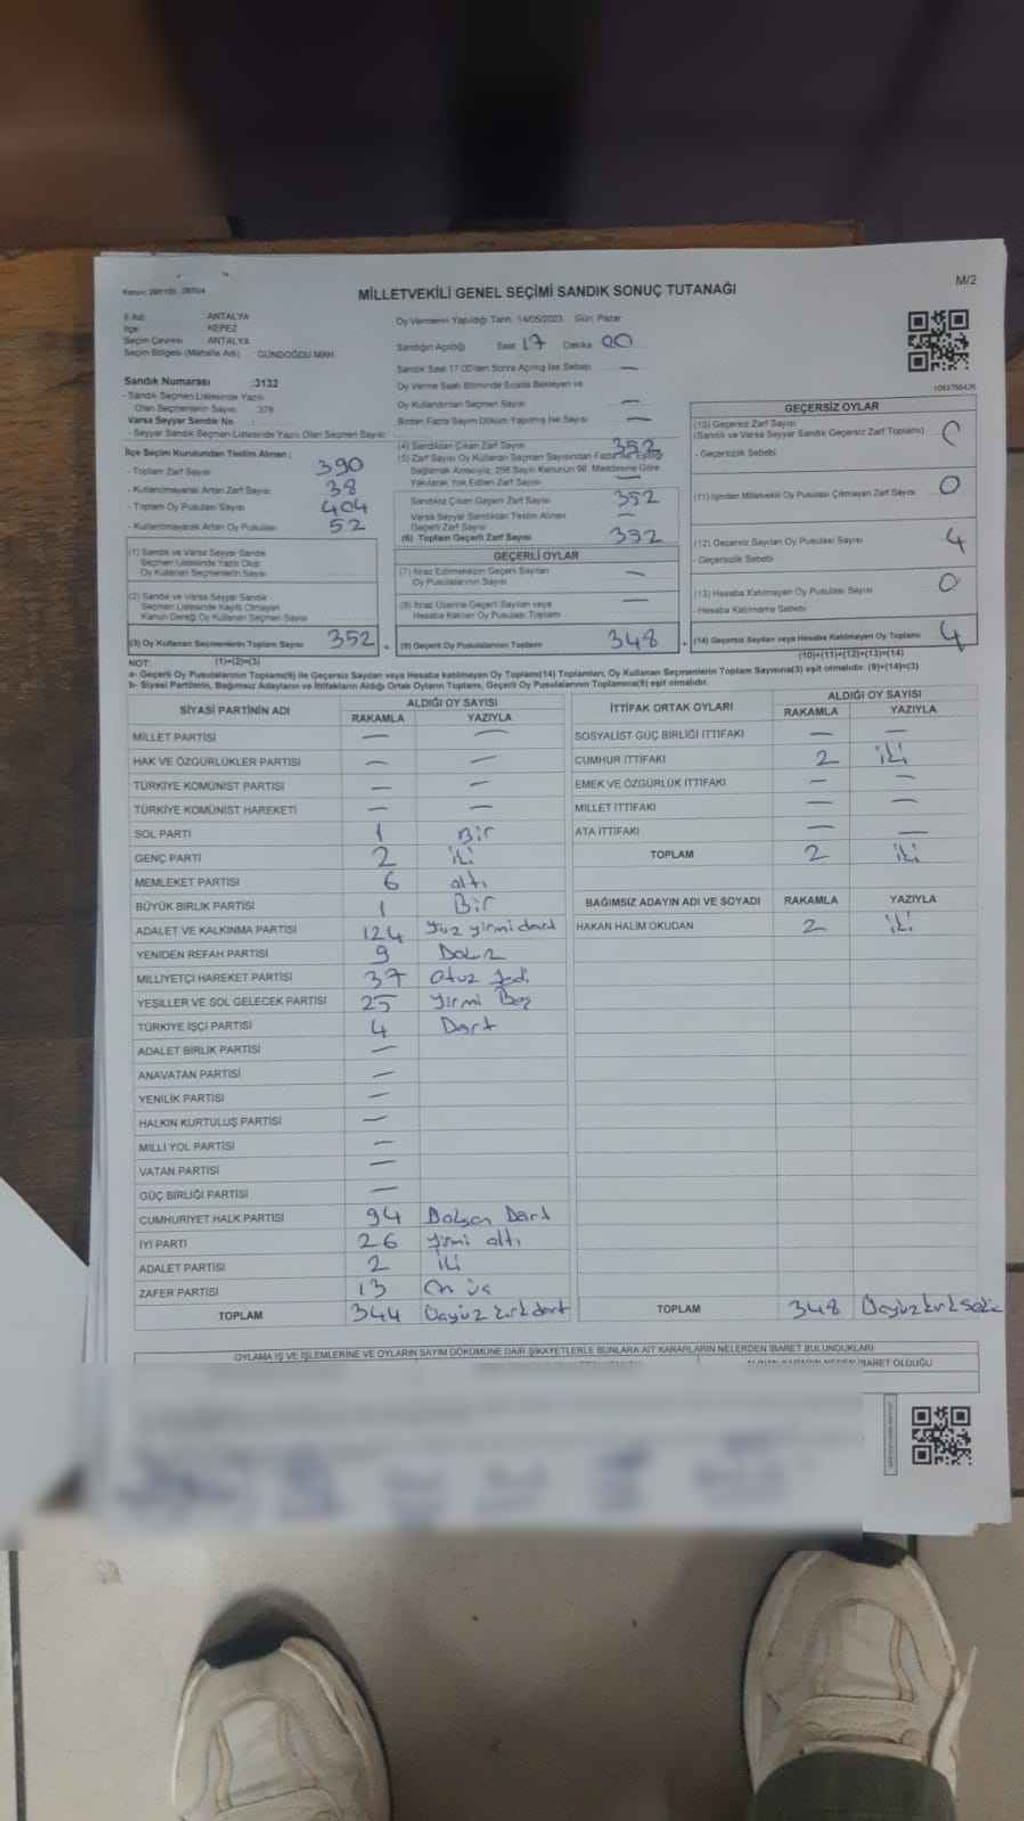 M/2
MİLLETVEKİLİ GENEL SEÇİMİ SANDIK SONUÇ TUTANAĞI
İl Adı : ANTALYA
İlçe : KEPEZ
Seçim Çevresi : ANTALYA
Seçim Bölgesi (Mahalle Adı) : GÜNDOĞDU MAH.
Oy Vermenin Yapıldığı Tarih: 14/05/2023 Gün: Pazar
Sandığın Açıldığı Saat 17 Dakika 00
Sandık Saat 17.00'den Sonra Açılmış İse Sebebi —
Sandık Numarası :3132
- Sandık Seçmen Listesinde Yazılı
Olan Seçmenlerin Sayısı : 378
Varsa Seyyar Sandık No :
- Seyyar Sandık Seçmen Listesinde Yazılı Olan Seçmen Sayısı:
Oy Verme Saati Bitiminde Sırada Bekleyen ve
Oy Kullandırılan Seçmen Sayısı —
Birden Fazla Sayım Döküm Yapılmış İse Sayısı —
İlçe Seçim Kurulundan Teslim Alınan :
- Toplam Zarf Sayısı 390
- Kullanılmayarak Artan Zarf Sayısı 38
- Toplam Oy Pusulası Sayısı 404
- Kullanılmayarak Artan Oy Pusulası 52
(1) Sandık ve Varsa Seyyar Sandık
Seçmen Listesinde Yazılı Olup
Oy Kullanan Seçmenlerin Sayısı
(2) Sandık ve Varsa Seyyar Sandık
Seçmen Listesinde Kayıtlı Olmayan
Kanun Gereği Oy Kullanan Seçmen Sayısı
(3) Oy Kullanan Seçmenlerin Toplam Sayısı 352
(1)+(2)=(3)
(4) Sandıktan Çıkan Zarf Sayısı 352
(5) Zarf Sayısı Oy Kullanan Seçmen Sayısından Fazla İse Eşitliği
Sağlamak Amacıyla, 298 Sayılı Kanunun 98. Maddesine Göre
Yakılarak Yok Edilen Zarf Sayısı —
Sandıkta Çıkan Geçerli Zarf Sayısı 352
Varsa Seyyar Sandıktan Teslim Alınan
Geçerli Zarf Sayısı —
(6) Toplam Geçerli Zarf Sayısı 352
GEÇERLİ OYLAR
(7) İtiraz Edilmeksizin Geçerli Sayılan
Oy Pusulalarının Sayısı —
(8) İtiraz Üzerine Geçerli Sayılan veya
Hesaba Katılan Oy Pusulası Toplamı —
(9) Geçerli Oy Pusulalarının Toplamı 348
GEÇERSİZ OYLAR
(10) Geçersiz Zarf Sayısı
(Sandık ve Varsa Seyyar Sandık Geçersiz Zarf Toplamı) 0
- Geçersizlik Sebebi
(11) İçinden Milletvekili Oy Pusulası Çıkmayan Zarf Sayısı 0
(12) Geçersiz Sayılan Oy Pusulası Sayısı 4
- Geçersizlik Sebebi
(13) Hesaba Katılmayan Oy Pusulası Sayısı 0
- Hesaba Katılmama Sebebi
(14) Geçersiz Sayılan veya Hesaba Katılmayan Oy Toplamı 4
(10)+(11)+(12)+(13)=(14)
NOT:
a- Geçerli Oy Pusulalarının Toplamı(9) ile Geçersiz Sayılan veya Hesaba katılmayan Oy Toplamı(14) Toplamları, Oy Kullanan Seçmenlerin Toplam Sayısına(3) eşit olmalıdır. (9)+(14)=(3)
b- Siyasi Partilerin, Bağımsız Adayların ve İttifakların Aldığı Ortak Oyların Toplamı, Geçerli Oy Pusulalarının Toplamına(9) eşit olmalıdır.
SİYASİ PARTİNİN ADI ALDIĞI OY SAYISI
RAKAMLA YAZIYLA
MİLLET PARTİSİ — —
HAK VE ÖZGÜRLÜKLER PARTİSİ — —
TÜRKİYE KOMÜNİST PARTİSİ — —
TÜRKİYE KOMÜNİST HAREKETİ — —
SOL PARTİ 1 Bir
GENÇ PARTİ 2 iki
MEMLEKET PARTİSİ 6 altı
BÜYÜK BİRLİK PARTİSİ 1 Bir
ADALET VE KALKINMA PARTİSİ 124 Yüz yirmi dört
YENİDEN REFAH PARTİSİ 9 Dokuz
MİLLİYETÇİ HAREKET PARTİSİ 37 Otuz Yedi
YEŞİLLER VE SOL GELECEK PARTİSİ 25 Yirmi Beş
TÜRKİYE İŞÇİ PARTİSİ 4 Dört
ADALET BİRLİK PARTİSİ —
ANAVATAN PARTİSİ —
YENİLİK PARTİSİ —
HALKIN KURTULUŞ PARTİSİ —
MİLLİ YOL PARTİSİ —
VATAN PARTİSİ —
GÜÇ BİRLİĞİ PARTİSİ —
CUMHURİYET HALK PARTİSİ 94 Doksan Dört
İYİ PARTİ 26 yirmi altı
ADALET PARTİSİ 2 iki
ZAFER PARTİSİ 13 On üç
TOPLAM 344 Üçyüz kırk dört
İTTİFAK ORTAK OYLARI ALDIĞI OY SAYISI
RAKAMLA YAZIYLA
SOSYALİST GÜÇ BİRLİĞİ İTTİFAKI — —
CUMHUR İTTİFAKI 2 iki
EMEK VE ÖZGÜRLÜK İTTİFAKI — —
MİLLET İTTİFAKI — —
ATA İTTİFAKI — —
TOPLAM 2 iki
BAĞIMSIZ ADAYIN ADI VE SOYADI RAKAMLA YAZIYLA
HAKAN HALİM OKUDAN 2 iki
TOPLAM 348 Üçyüz kırk sekiz
OYLAMA İŞ VE İŞLEMLERİNE VE OYLARIN SAYIM DÖKÜMÜNE DAİR ŞİKAYETLERLE BUNLARA AİT KARARLARIN NELERDEN İBARET BULUNDUKLARI
İBARET OLDUĞU